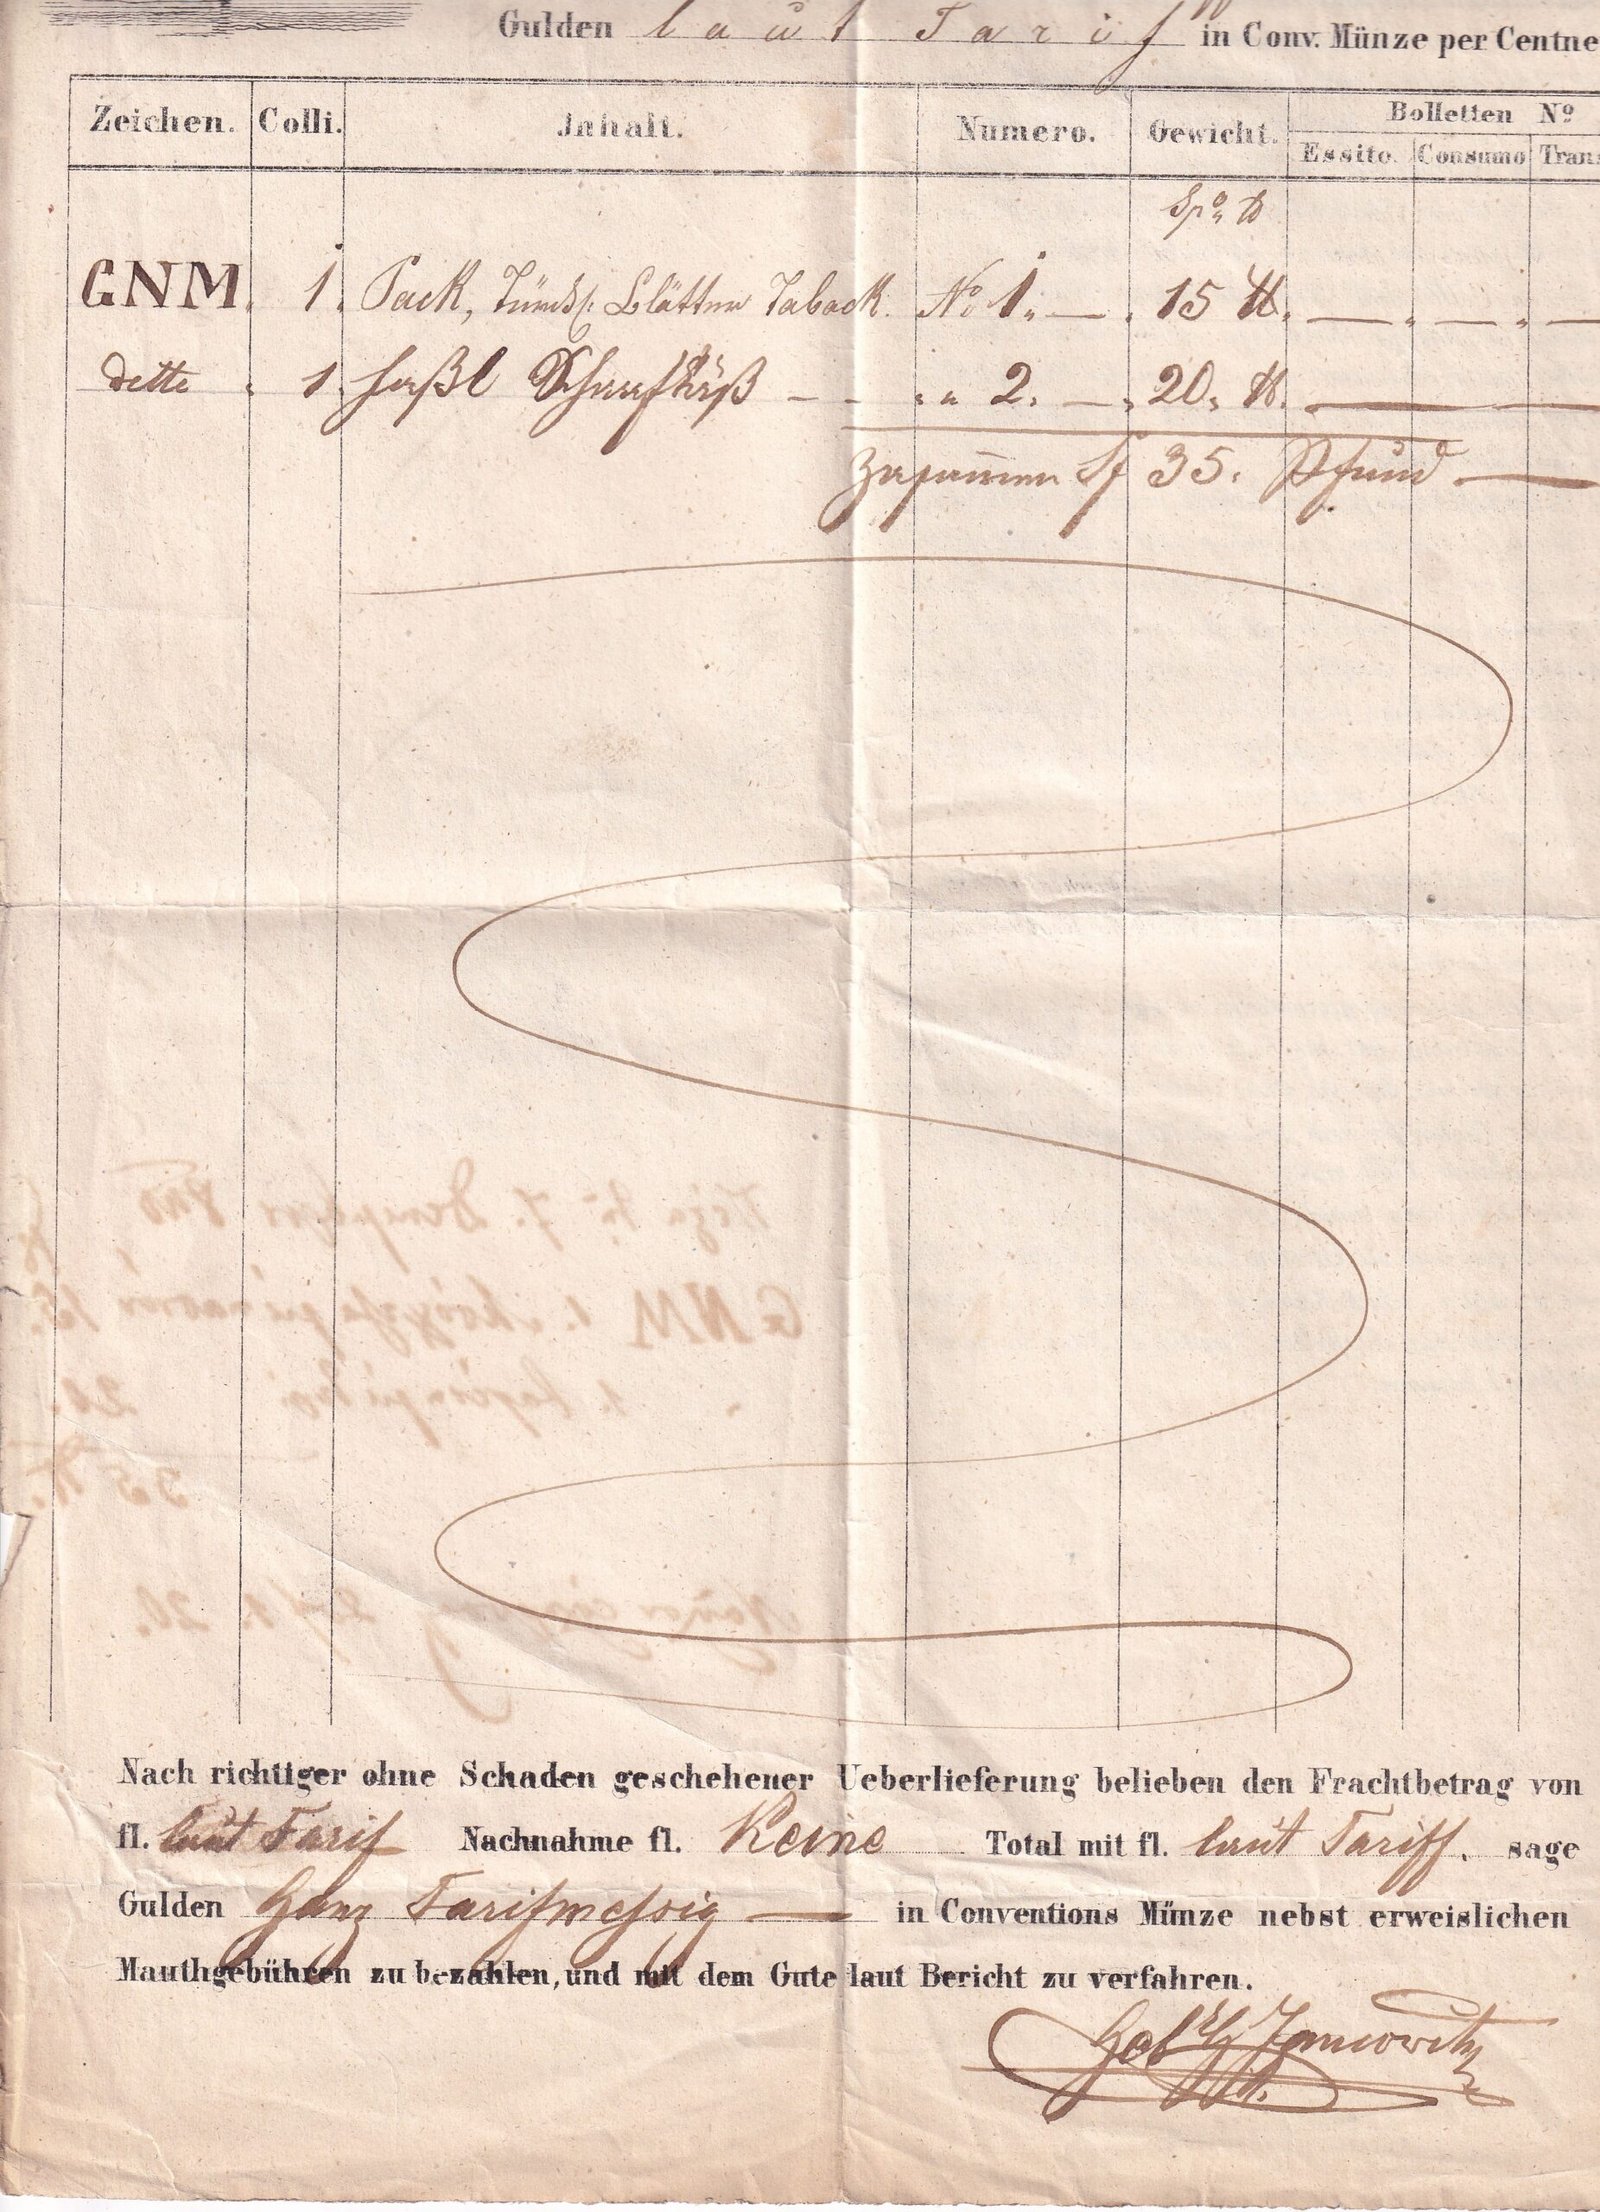 Gulden laut Tarif in Conv. Münze per Centne
Zeichen. Colli. Inhalt. Numero. Gewicht. Bolletten Nº
Essito. Consumo Trans
Spº ℔
GNM. 1. Pack, Türkß: Blätter Taback. Nº 1. — 15 ℔. — — —
dette 1 faßl Schaafkäß — „ „ 2. — 20. ℔. —
Zusam̅en Sp 35. Pfund —
Nach richtiger ohne Schaden geschehener Ueberlieferung belieben den Frachtbetrag von
fl. laut Tarif Nachnahme fl. Keine Total mit fl. laut Tariff. sage
Gulden Ganz Tarifmessig — in Conventions Münze nebst erweislichen
Mauthgebühren zu bezahlen, und mit dem Gute laut Bericht zu verfahren.
Geb Janowitz